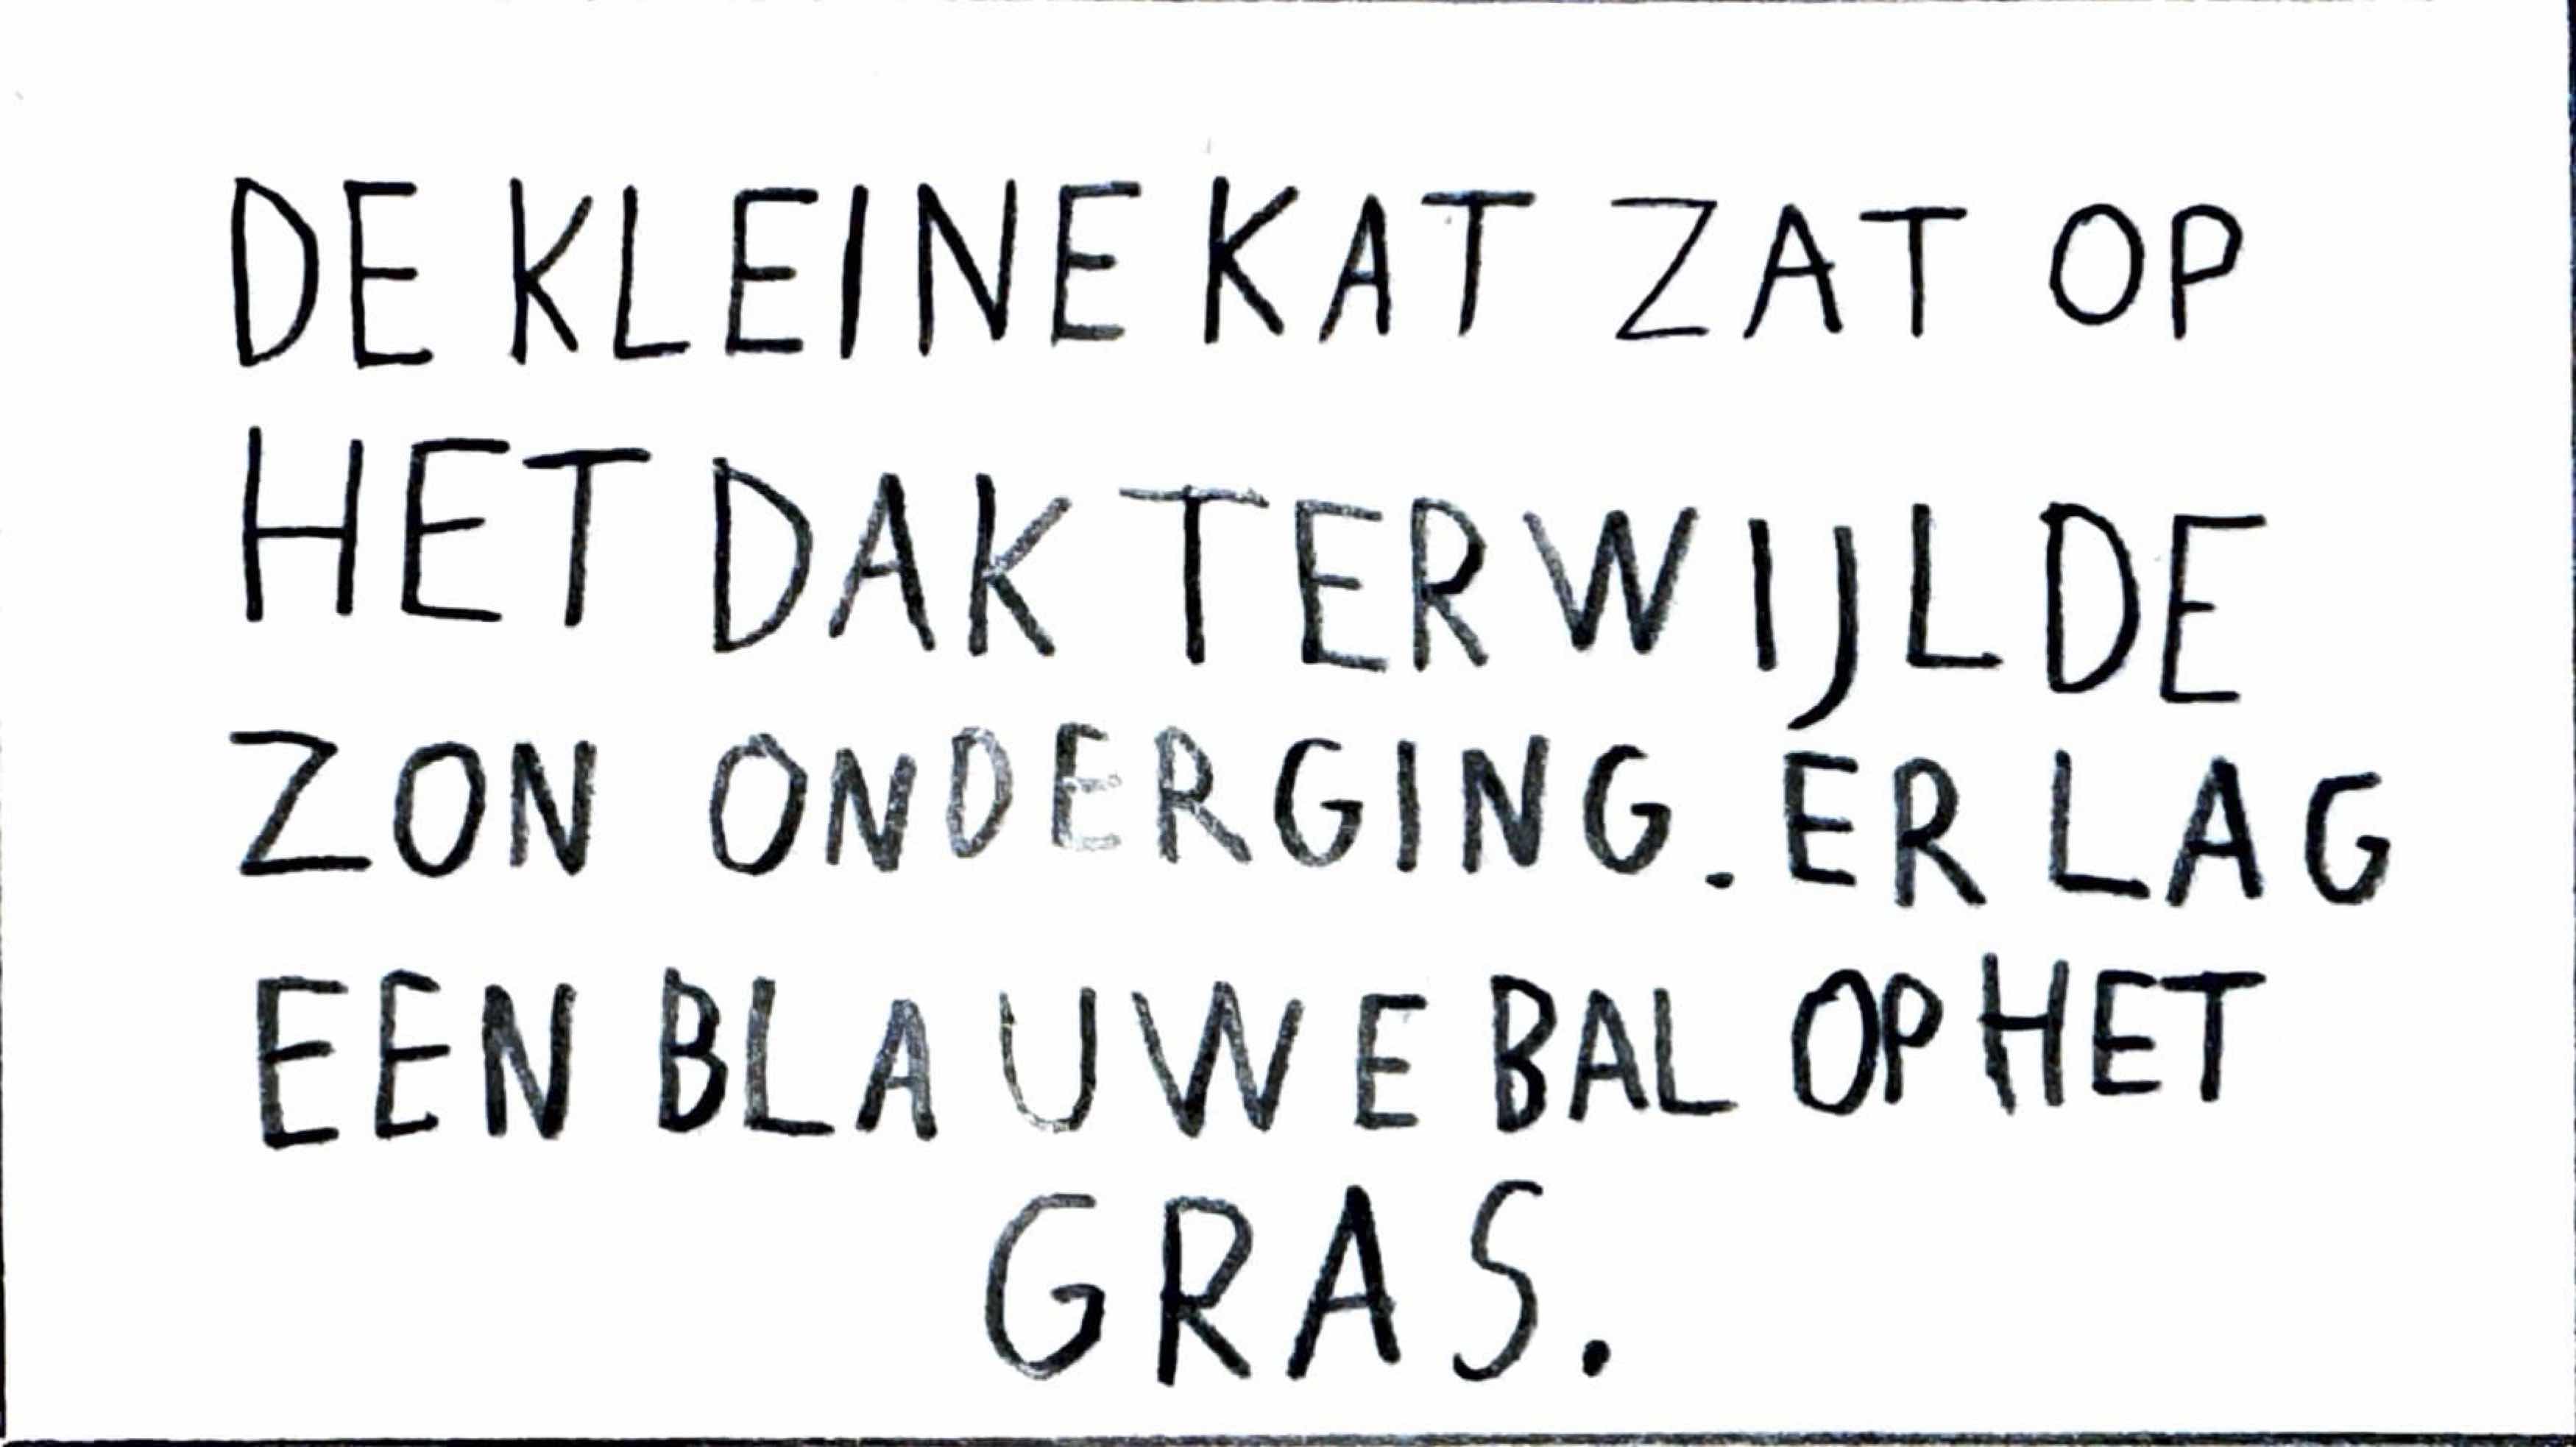 DE KLEINE KAT ZAT OP
HET DAK TERWIJL DE
ZON ONDERGING. ER LAG
EEN BLAUWE BAL OP HET
GRAS.